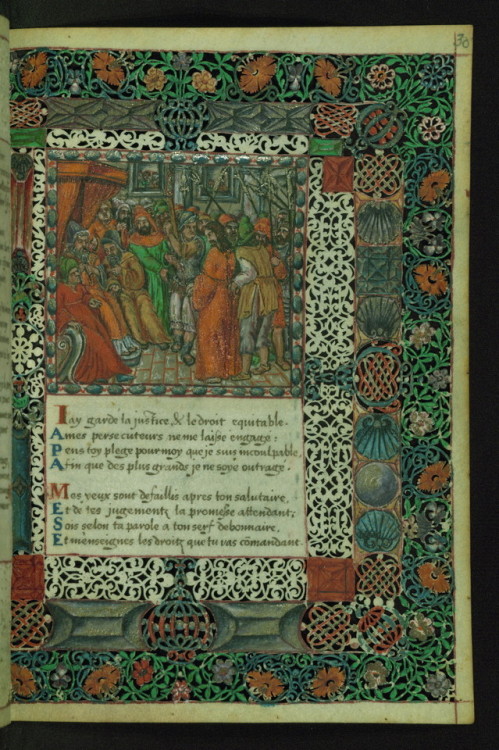 30
Iay garde la justice, & le droit equitable.
A mes persecuteurs ne me laisse engage:
Pens toy plege pour moy que je suis incoulpable,
Afin que des plus grands je ne soye oultrage.
Mes yeux sont defaillis apres ton salutaire,
Et de tes jugements la promesse attendant;
Sois selon ta parole a ton serf debonnaire,
Et m'enseignes les droitz que tu vas cōmandant.